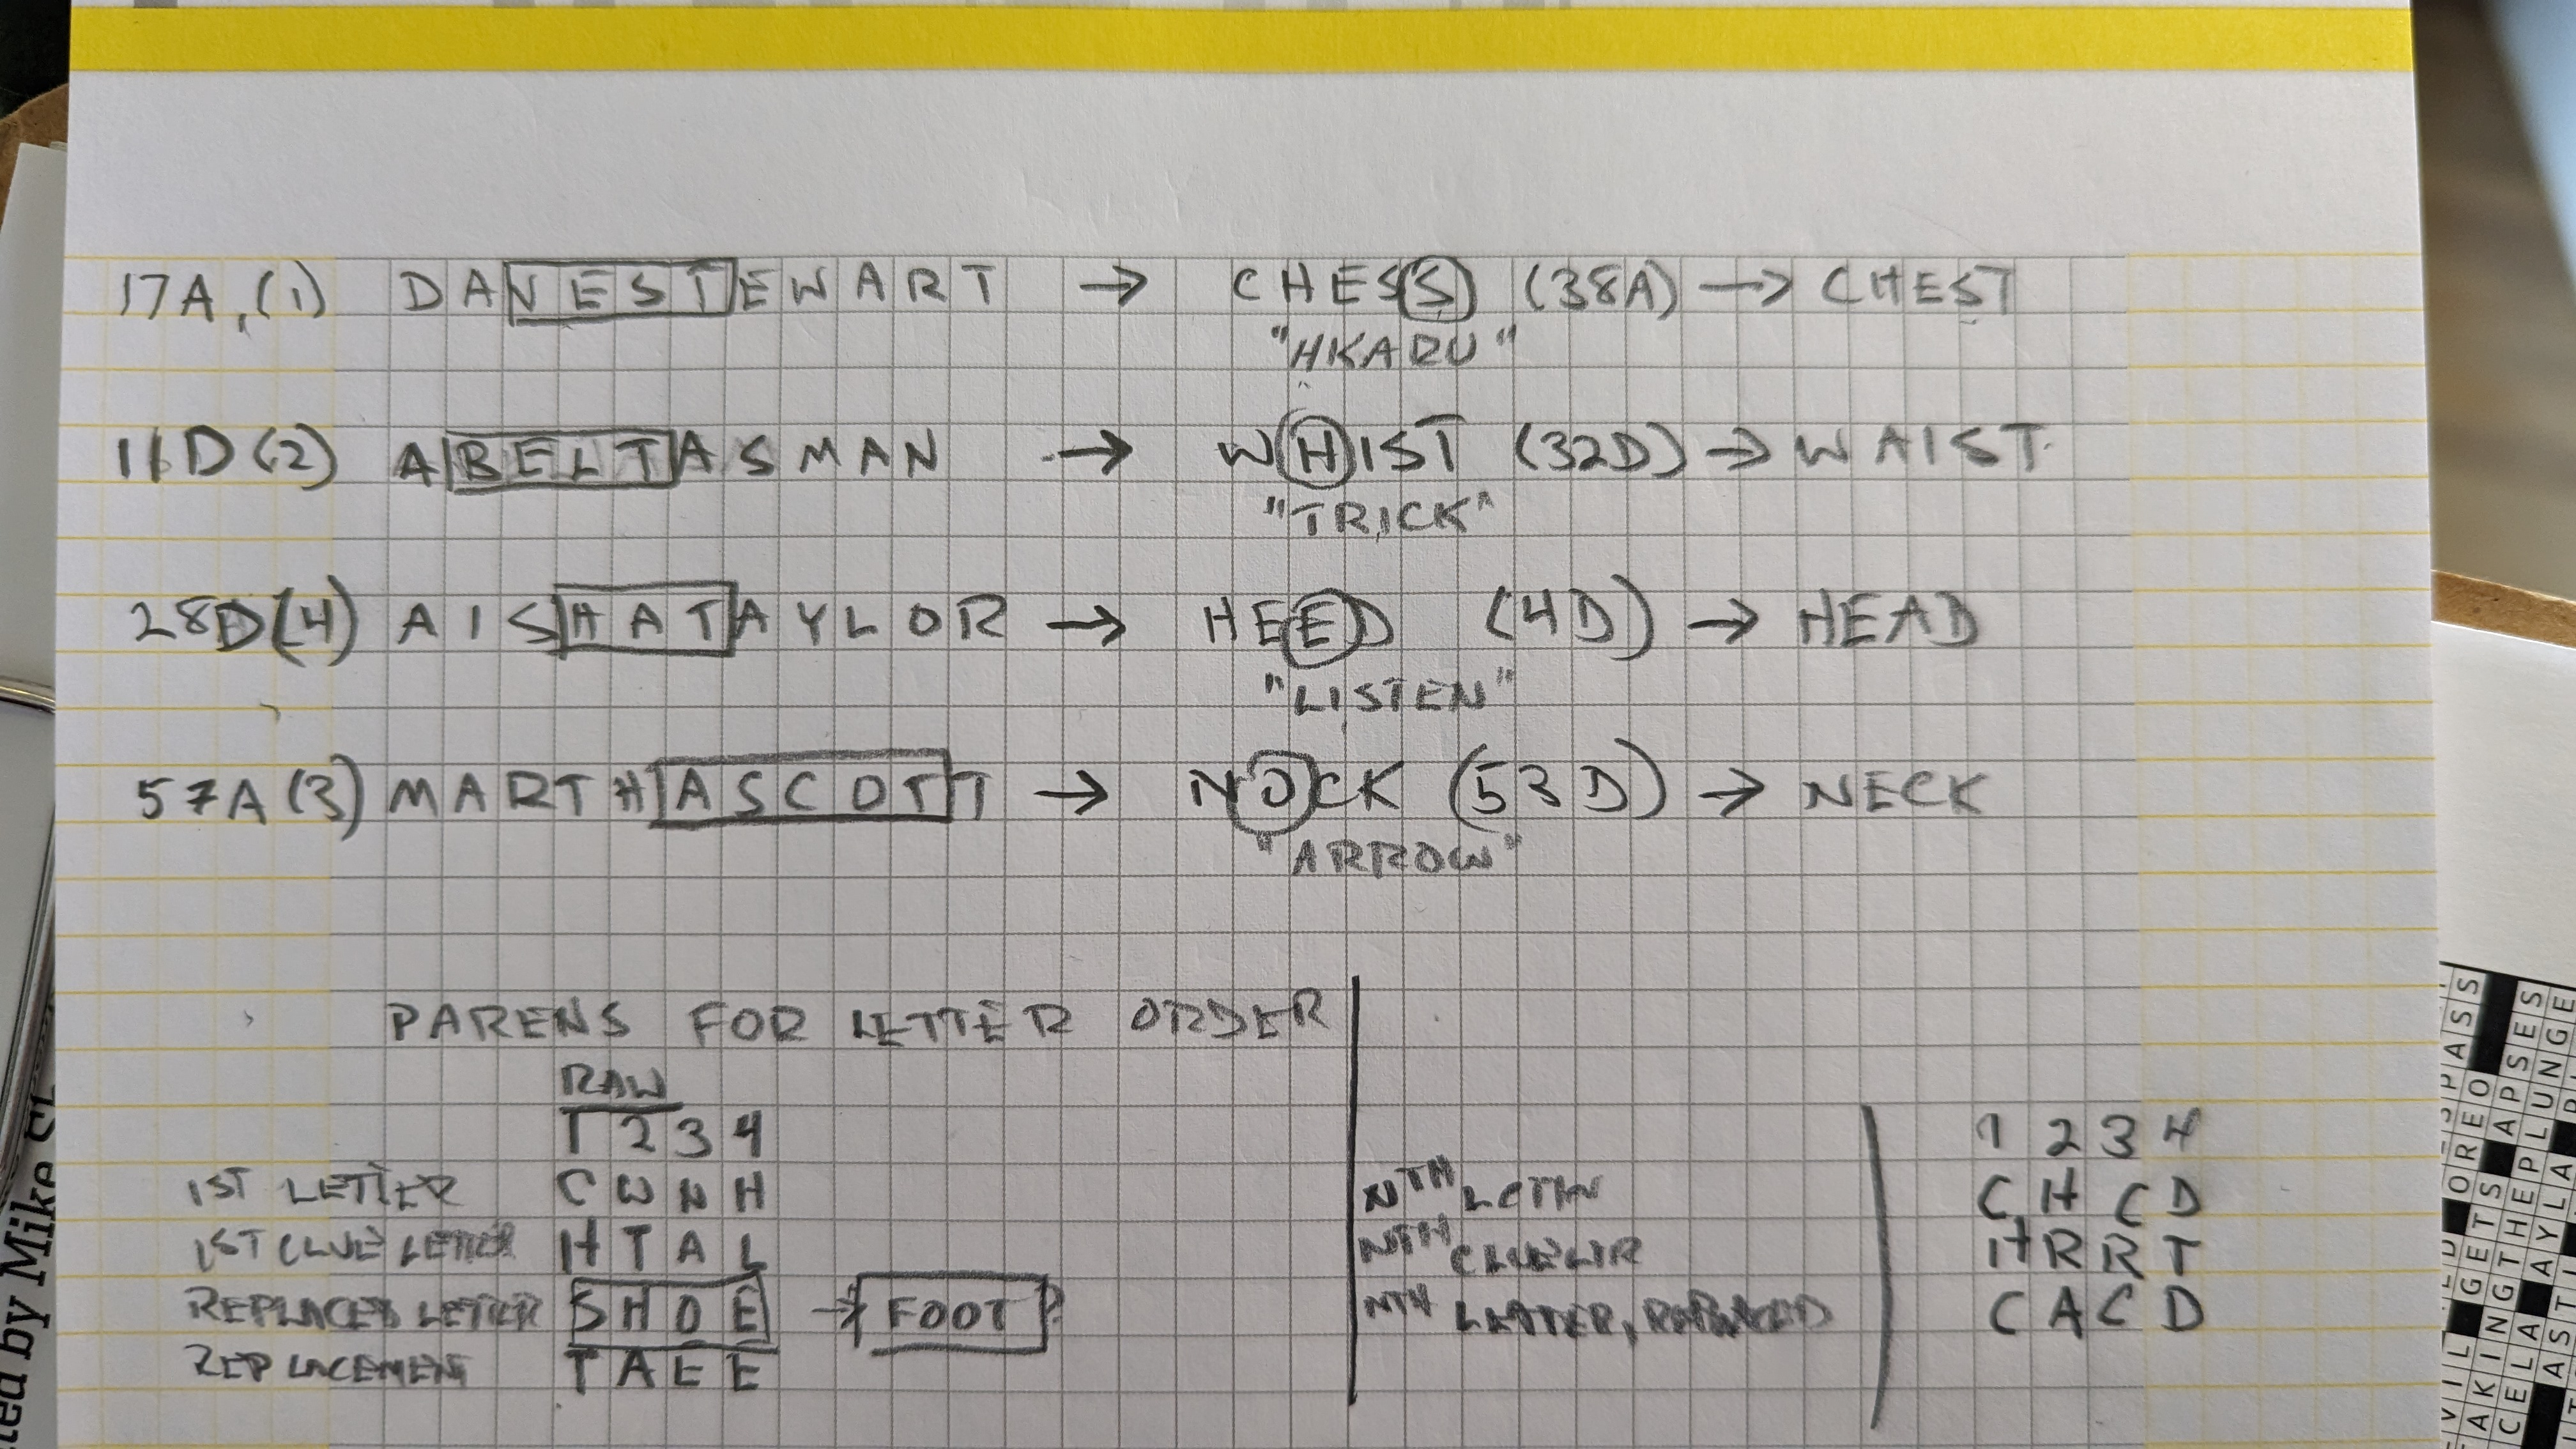 17A, (1) DAVESTEWART → CHESS (38A) → CHEST
"HKARU"
11D (2) ABELTASMAN → WHIST (32D) → WAIST
"TRICK"
28D (4) AISHATAYLOR → HEED (4D) → HEAD
"LISTEN"
57A (3) MARTHASCOTT → NOCK (53D) → NECK
"ARROW"
PARENS FOR LETTER ORDER
RAW
1 2 3 4
1ST LETTER C W N H
1ST CLUE LETTER H T A L
REPLACED LETTER S H O E → FOOT?
REPLACEMENT T A E E
1 2 3 4
NTH C H C D
NTH H R R T
NTH LETTER, REPLACED C A C D
ted by Mike
SPASS
OREO
APSES
GETS
AKINGTHEPLUNGE
CELA
AYLA